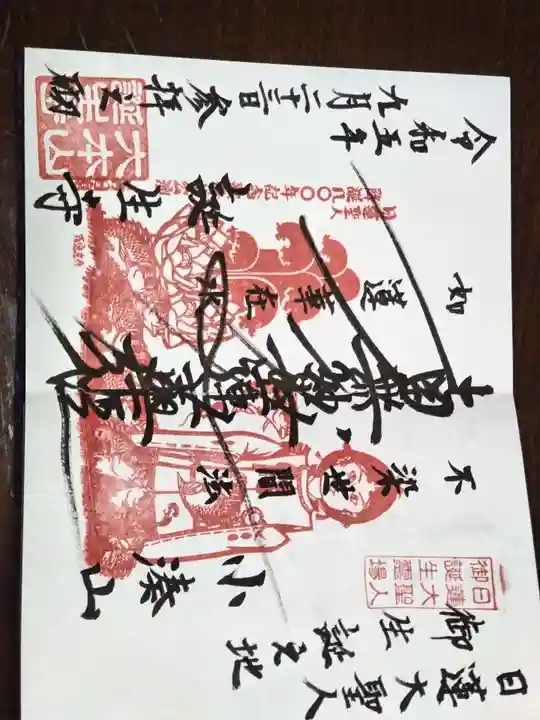 日蓮大聖人
御生誕之地
日蓮大聖人
御誕生霊場
小湊山
不染世間法
南無妙法蓮華経
如蓮華在水
誕生寺
日蓮聖人
降誕八〇〇年記念
令和五年
九月二十三日参拝之砌
大本山
誕生寺